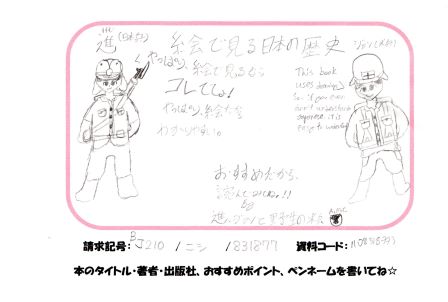 進
絵会で見る日本の歴史
やっぱり、絵で見るなら
コレでしょ!
やっぱり、絵だと
わかりやすい。
This book
uses drawings
so if you even
can't understand
Japanese it is
easy to understand
おすすめだから、
読んでみてね!!
by
請求記号:BJ210 /ニシ /831877 資料コード:
本のタイトル・著者・出版社、おすすめポイント、ペンネームを書いてね☆